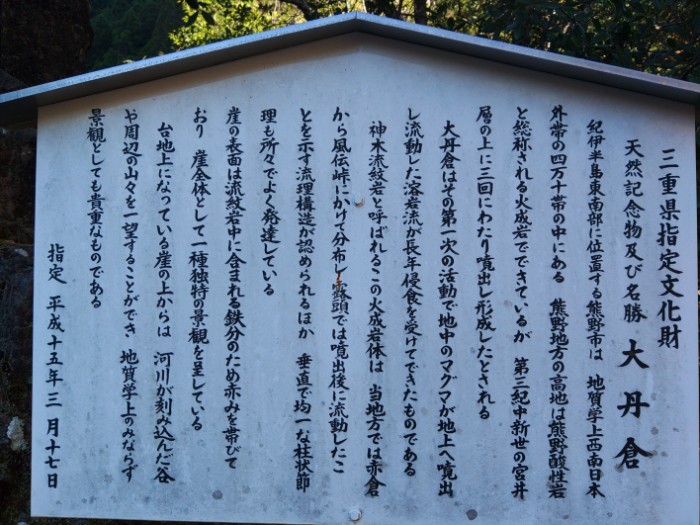 三重県指定文化財
天然記念物及び名勝 大丹倉
紀伊半島東南部に位置する熊野市は 地質学上西南日本
外帯の四万十帯の中にある 熊野地方の高地は熊野酸性岩
と総称される火成岩でできているが 第三紀中新世の宮井
層の上に三回にわたり噴出し形成したとされる
大丹倉はその第一次の活動で地中のマグマが地上へ噴出
し流動した溶岩流が長年侵食を受けてできたものである
神木流紋岩と呼ばれるこの火成岩体は 当地方では赤倉
から風伝峠にかけて分布し 露頭では噴出後に流動したこ
とを示す流理構造が認められるほか 垂直で均一な柱状節
理も所々でよく発達している
崖の表面は流紋岩中に含まれる鉄分のため赤みを帯びて
おり 崖全体として一種独特の景観を呈している
台地上になっている崖の上からは 河川が刻み込んだ谷
や周辺の山々を一望することができ 地質学上のみならず
景観としても貴重なものである
指定 平成十五年三月十七日